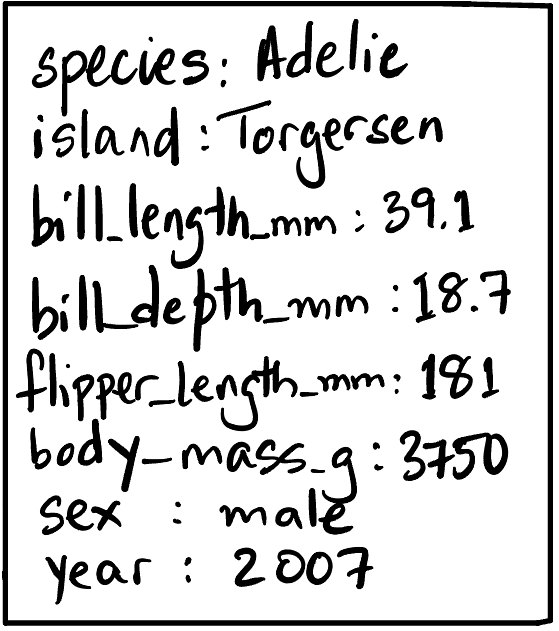 species: Adelie
island: Torgersen
bill_length_mm: 39.1
bill_depth_mm: 18.7
flipper_length_mm: 181
body_mass_g: 3750
sex : male
year : 2007